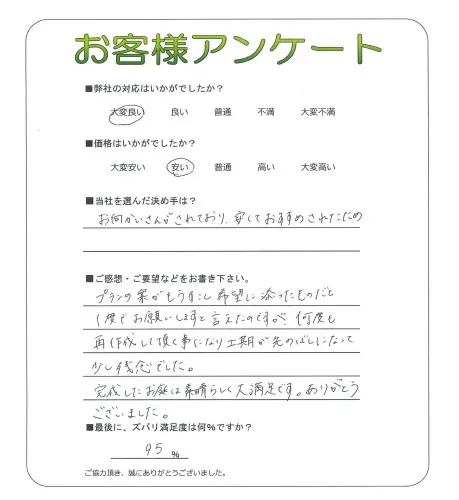 お客様アンケート
■弊社の対応はいかがでしたか？
大変良い 良い 普通 不満 大変不満
■価格はいかがでしたか？
大変安い 安い 普通 高い 大変高い
■当社を選んだ決め手は？
お向かいさんがされており、安くておすすめされたため
■ご感想・ご要望などをお書き下さい。
プランの案がもう少し希望に添ったものだと
1度でお願いしますと言えたのですが、何度も
再作成して頂く事になり工期が先のばしになって
少し残念でした。
完成したお庭は素晴らしく大満足です。ありがとう
ございました。
■最後に、ズバリ満足度は何%ですか？
95 %
ご協力頂き、誠にありがとうございました。